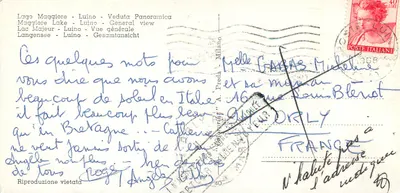 Lago Maggiore - Luino - Veduta Panoramica
Maggiore Lake - Luino - General view
Lac Majeur - Luino - Vue générale
Langensee - Luino - Gesamtansicht
Ces quelques mots pour
vous dire que nous avons
beaucoup de soleil en Italie
il fait beaucoup plus beau
qu'en Bretagne... Catherine
ne veut jamais sortir de l'eau
Angela non plus
de tous Angela
Riproduzione vietata
Milano
POSTE ITALIANE
Melle
et sa maman
16 rue Louis Blériot
ORLY
FRANCE
N'habite pas à
l'adresse
indiquée